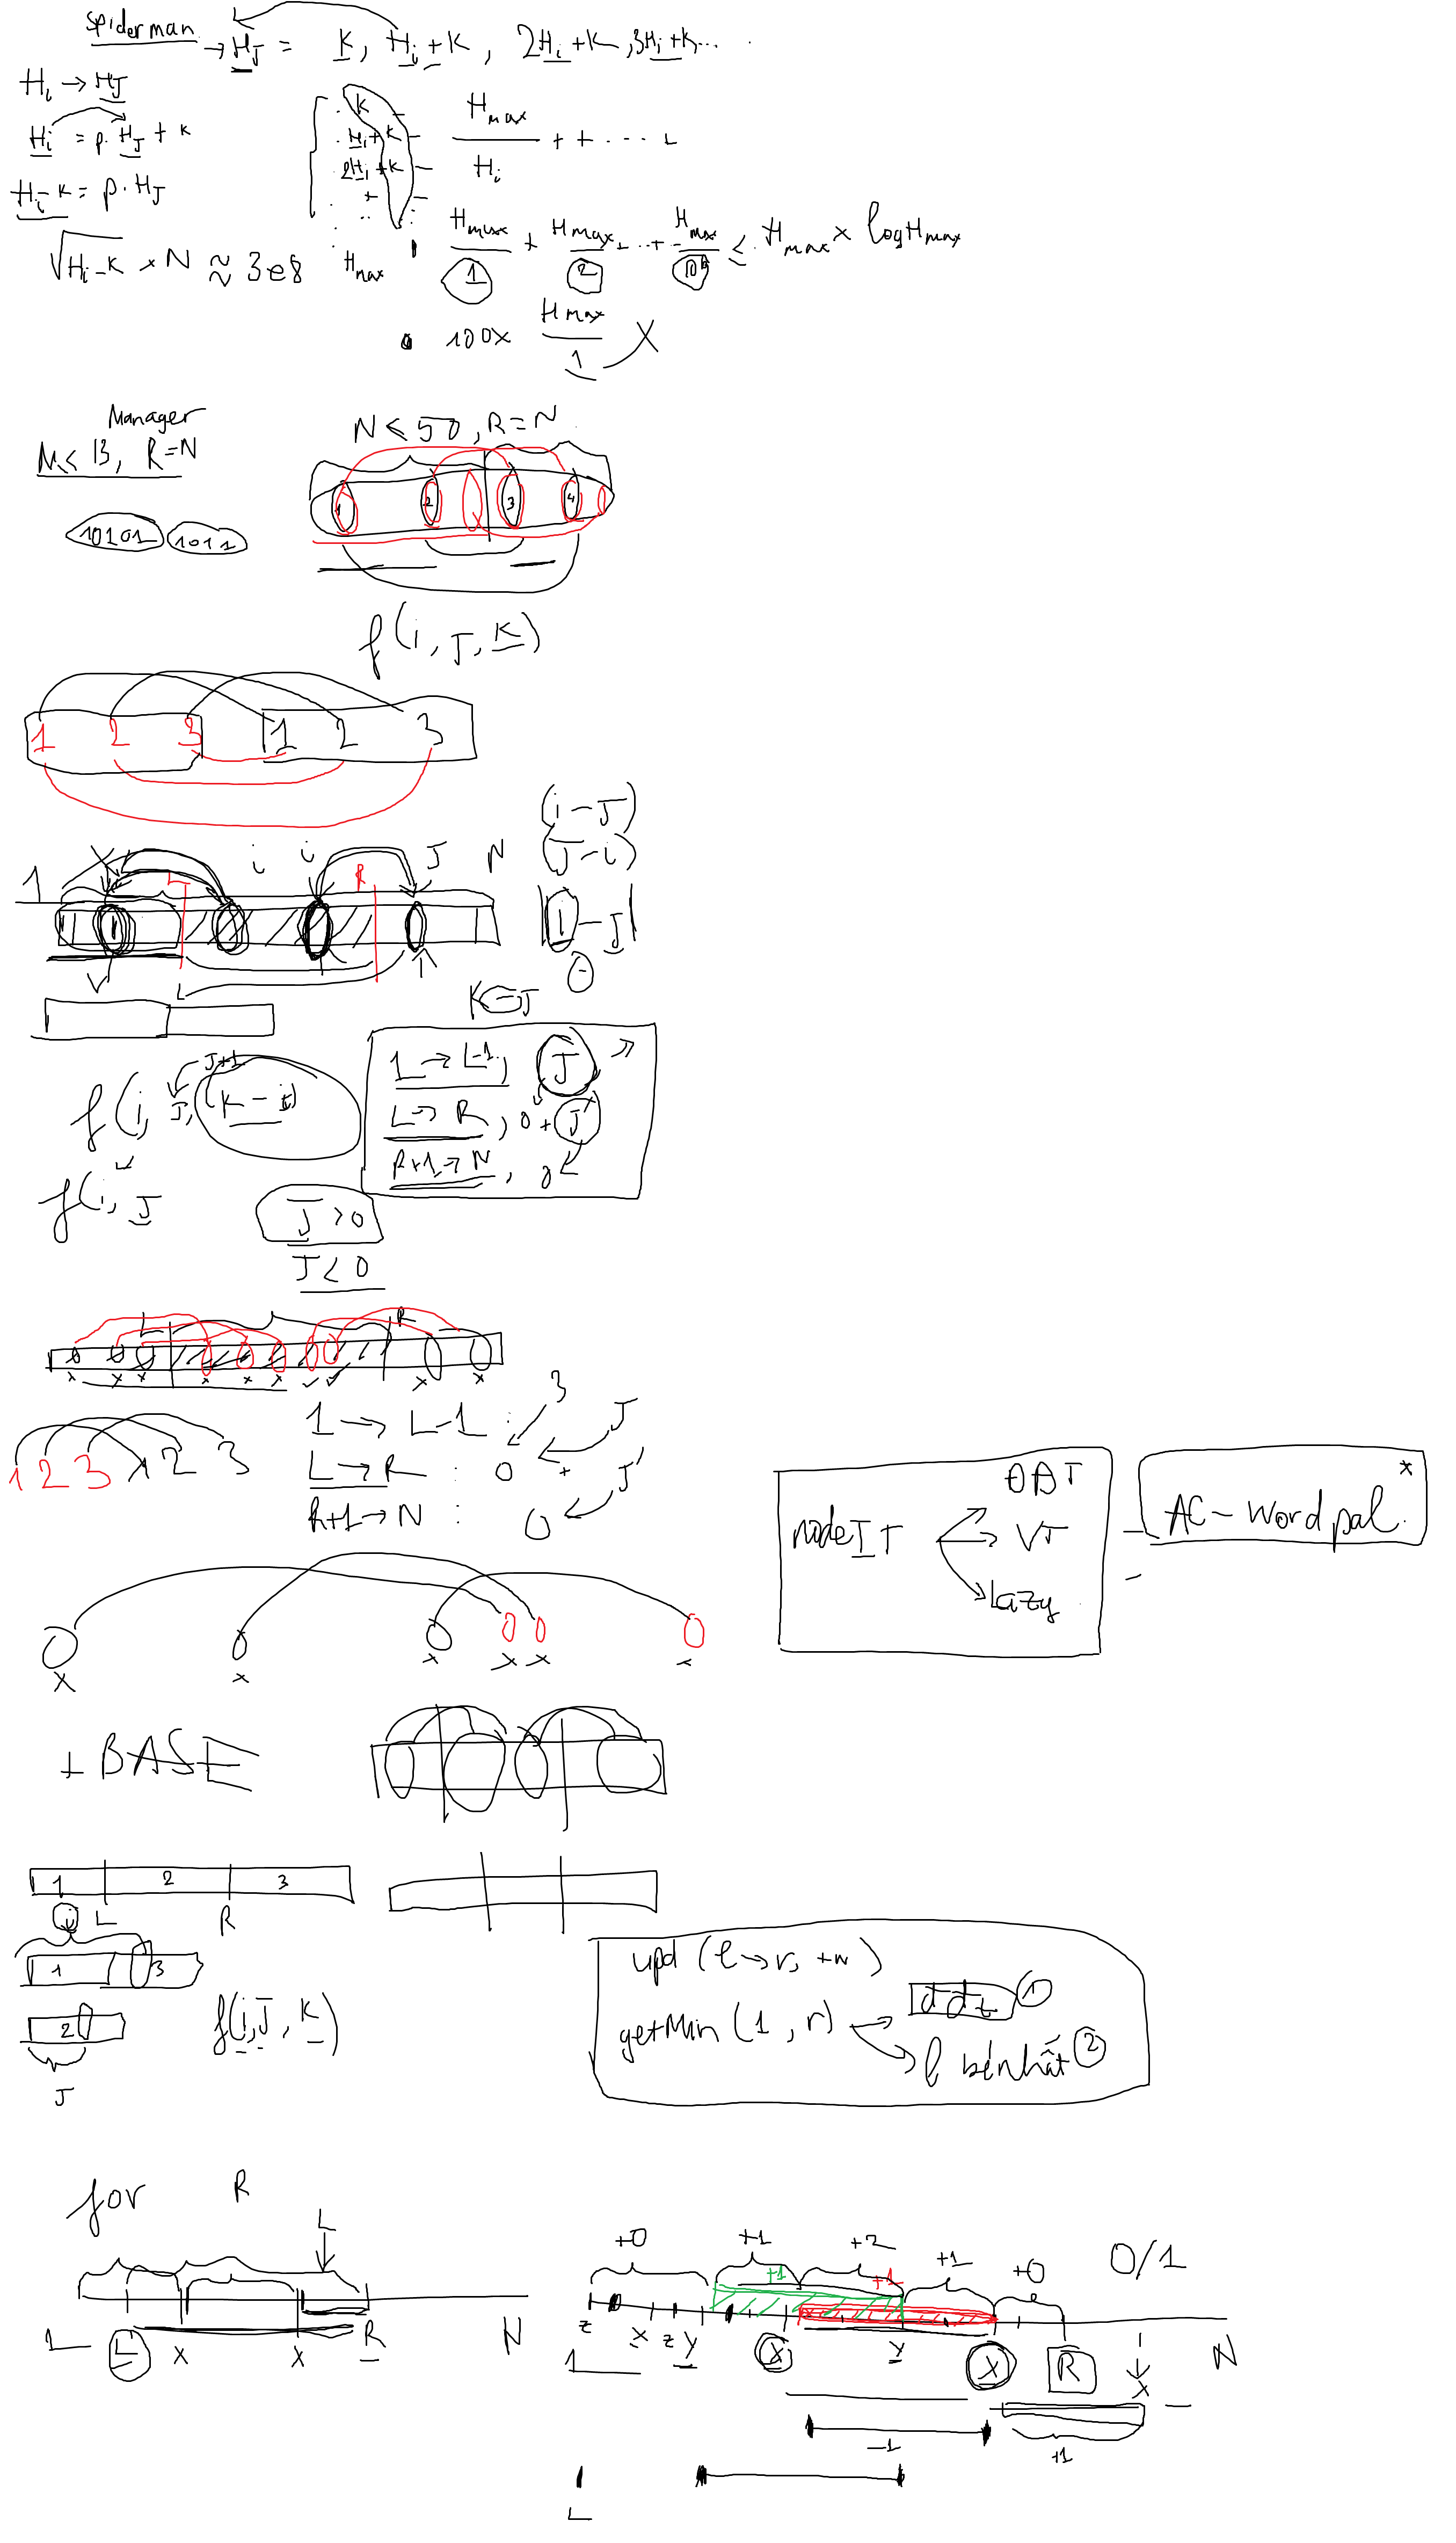 spiderman → H_J = K, H_i + K, 2H_i + K, 3H_i + K, ...
H_i → H_J
H_i = p. H_J + K
H_i - K = p. H_J
√(H_i - K) × N ≈ 3e8
K
H_i + K
2H_i + K
H_max
H_max / H_i + + .... +
H_max / 1 + H_max / 2 + .. + H_max / 10^6 ≤ H_max × log H_max
100 × H_max / 1 X
Manager
N ≤ 13, R = N
N ≤ 50, R = N
10101 1011
1 2 3 4
f(i, J, K)
1 2 3 1 2 3
(i - J)
(J - i)
|i - J|
0
1 X L i i R J N
L
K = J
J+1
f(i, J, (K - i)
1 → L-1, J
L → R, 0 + J'
R+1 → N, 0
f(i, J
J > 0
J < 0
L R
1 2 3 1 2 3
1 → L-1 : 3
L → R : 0 + J'
R+1 → N : 0
J
node IT → ĐBT
VT
Lazy
AC - Word pal.
+ BASE
1 2 3
i L R
1 3
2
J
f(i, J, K)
upd (l → r, +w)
getMin (1, r) → ddt 1
l bé nhất 2
for R
L
1 L X X R N
+0 +1 +2 +1 +0 0/1
+1 +1
z x z y X y X R X N
1
-1 +1
L